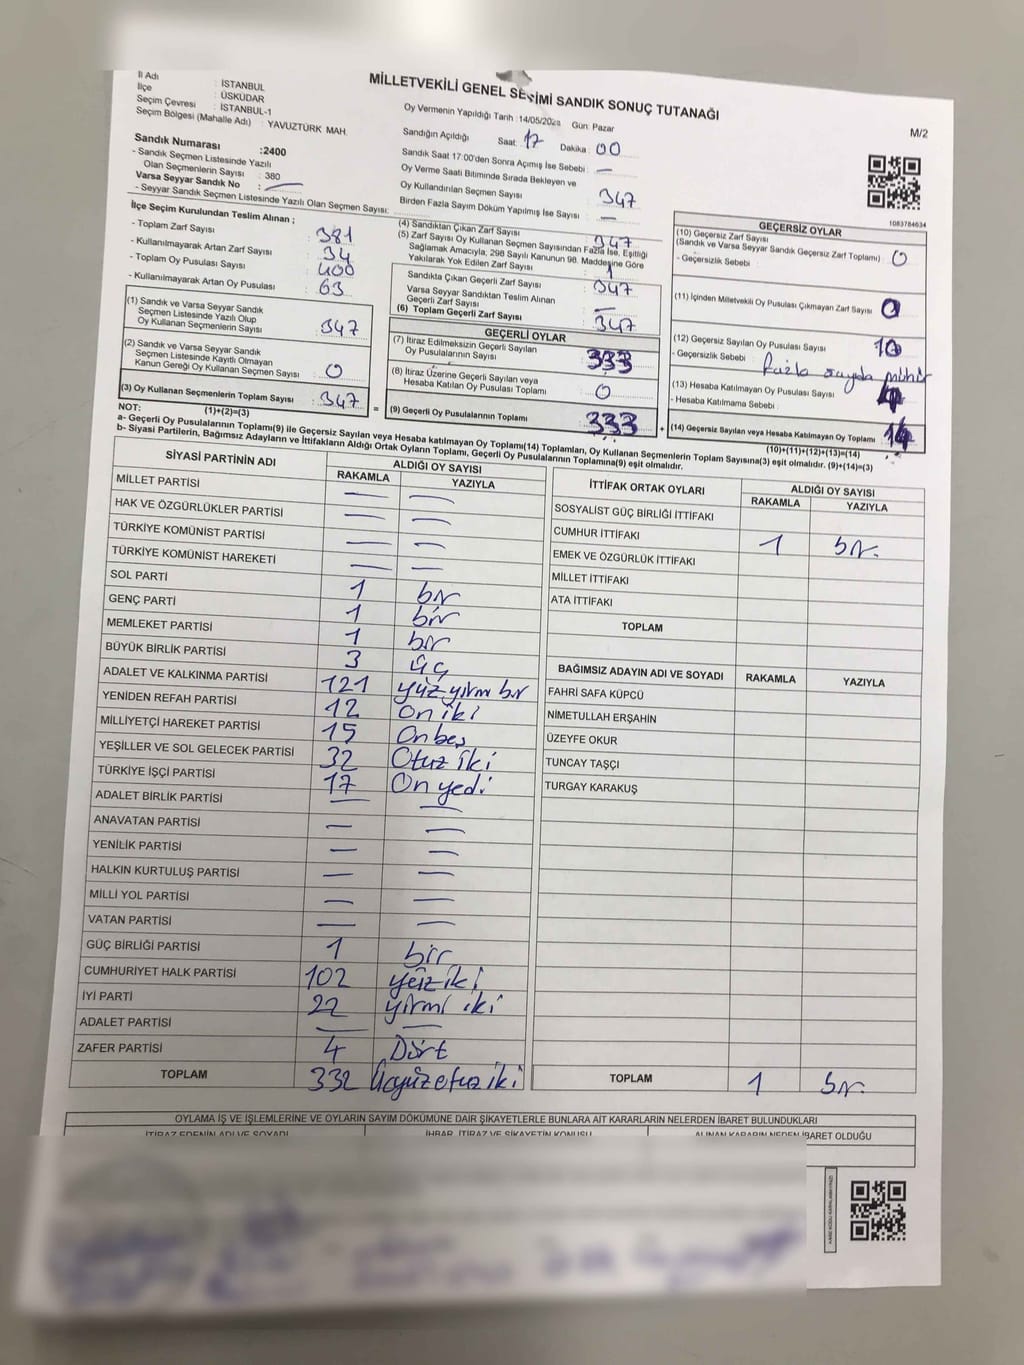 MİLLETVEKİLİ GENEL SEÇİMİ SANDIK SONUÇ TUTANAĞI
M/2
İl Adı : İSTANBUL
İlçe : ÜSKÜDAR
Seçim Çevresi : İSTANBUL-1
Seçim Bölgesi (Mahalle Adı) : YAVUZTÜRK MAH.
Sandık Numarası :2400
- Sandık Seçmen Listesinde Yazılı
Olan Seçmenlerin Sayısı : 380
Varsa Seyyar Sandık No : —
- Seyyar Sandık Seçmen Listesinde Yazılı Olan Seçmen Sayısı:
Oy Vermenin Yapıldığı Tarih :14/05/2023 Gün: Pazar
Sandığın Açıldığı Saat 17 Dakika 00
Sandık Saat 17:00'den Sonra Açımış İse Sebebi : —
Oy Verme Saati Bitiminde Sırada Bekleyen ve
Oy Kullandırılan Seçmen Sayısı : 347
Birden Fazla Sayım Döküm Yapılmış İse Sayısı : —
İlçe Seçim Kurulundan Teslim Alınan ;
- Toplam Zarf Sayısı : 381
- Kullanılmayarak Artan Zarf Sayısı : 34
- Toplam Oy Pusulası Sayısı : 400
- Kullanılmayarak Artan Oy Pusulası : 63
(1) Sandık ve Varsa Seyyar Sandık
Seçmen Listesinde Yazılı Olup
Oy Kullanan Seçmenlerin Sayısı : 347
(2) Sandık ve Varsa Seyyar Sandık
Seçmen Listesinde Kayıtlı Olmayan
Kanun Gereği Oy Kullanan Seçmen Sayısı : 0
(3) Oy Kullanan Seçmenlerin Toplam Sayısı : 347
(4) Sandıktan Çıkan Zarf Sayısı : 347
(5) Zarf Sayısı Oy Kullanan Seçmen Sayısından Fazla İse, Eşitliği
Sağlamak Amacıyla, 298 Sayılı Kanunun 98. Maddesine Göre
Yakılarak Yok Edilen Zarf Sayısı :
Sandıkta Çıkan Geçerli Zarf Sayısı : 347
Varsa Seyyar Sandıktan Teslim Alınan
Geçerli Zarf Sayısı : —
(6) Toplam Geçerli Zarf Sayısı : 347
GEÇERLİ OYLAR
(7) İtiraz Edilmeksizin Geçerli Sayılan
Oy Pusulalarının Sayısı : 333
(8) İtiraz Üzerine Geçerli Sayılan veya
Hesaba Katılan Oy Pusulası Toplamı : 0
(9) Geçerli Oy Pusulalarının Toplamı : 333
1083784634
GEÇERSİZ OYLAR
(10) Geçersiz Zarf Sayısı
(Sandık ve Varsa Seyyar Sandık Geçersiz Zarf Toplamı) : 0
- Geçersizlik Sebebi :
(11) İçinden Milletvekili Oy Pusulası Çıkmayan Zarf Sayısı : 0
(12) Geçersiz Sayılan Oy Pusulası Sayısı : 10
- Geçersizlik Sebebi : fazla sayıda mühür
(13) Hesaba Katılmayan Oy Pusulası Sayısı : 4
- Hesaba Katılmama Sebebi :
(14) Geçersiz Sayılan veya Hesaba Katılmayan Oy Toplamı : 14
NOT: (1)+(2)=(3)
(10)+(11)+(12)+(13)=(14)
a- Geçerli Oy Pusulalarının Toplam(9) ile Geçersiz Sayılan veya Hesaba katılmayan Oy Toplam(14) Toplamları, Oy Kullanan Seçmenlerin Toplam Sayısına(3) eşit olmalıdır. (9)+(14)=(3)
b- Siyasi Partilerin, Bağımsız Adayların ve İttifakların Aldığı Ortak Oyların Toplamı, Geçerli Oy Pusulalarının Toplamına(9) eşit olmalıdır.
SİYASİ PARTİNİN ADI ALDIĞI OY SAYISI
RAKAMLA YAZIYLA
MİLLET PARTİSİ — —
HAK VE ÖZGÜRLÜKLER PARTİSİ — —
TÜRKİYE KOMÜNİST PARTİSİ — —
TÜRKİYE KOMÜNİST HAREKETİ — —
SOL PARTİ 1 bir
GENÇ PARTİ 1 bir
MEMLEKET PARTİSİ 1 bir
BÜYÜK BİRLİK PARTİSİ 3 üç
ADALET VE KALKINMA PARTİSİ 121 yüz yirmi bir
YENİDEN REFAH PARTİSİ 12 On iki
MİLLİYETÇİ HAREKET PARTİSİ 15 Onbeş
YEŞİLLER VE SOL GELECEK PARTİSİ 32 Otuz iki
TÜRKİYE İŞÇİ PARTİSİ 17 On yedi
ADALET BİRLİK PARTİSİ — —
ANAVATAN PARTİSİ — —
YENİLİK PARTİSİ — —
HALKIN KURTULUŞ PARTİSİ — —
MİLLİ YOL PARTİSİ — —
VATAN PARTİSİ — —
GÜÇ BİRLİĞİ PARTİSİ 1 bir
CUMHURİYET HALK PARTİSİ 102 yüz iki
İYİ PARTİ 22 yirmi iki
ADALET PARTİSİ — —
ZAFER PARTİSİ 4 Dört
TOPLAM 332 Üçyüzotuz iki
İTTİFAK ORTAK OYLARI ALDIĞI OY SAYISI
RAKAMLA YAZIYLA
SOSYALİST GÜÇ BİRLİĞİ İTTİFAKI
CUMHUR İTTİFAKI 1 bir.
EMEK VE ÖZGÜRLÜK İTTİFAKI
MİLLET İTTİFAKI
ATA İTTİFAKI
TOPLAM
BAĞIMSIZ ADAYIN ADI VE SOYADI RAKAMLA YAZIYLA
FAHRİ SAFA KÜPCÜ
NİMETULLAH ERŞAHİN
ÜZEYFE OKUR
TUNCAY TAŞÇI
TURGAY KARAKUŞ
TOPLAM 1 bir.
OYLAMA İŞ VE İŞLEMLERİNE VE OYLARIN SAYIM DÖKÜMÜNE DAİR ŞİKAYETLERLE BUNLARA AİT KARARLARIN NELERDEN İBARET BULUNDUKLARI
İTİRAZ EDENİN ADI VE SOYADI İHBAR, İTİRAZ VE ŞİKAYETİN KONUSU ALINAN KARARIN NEDEN İBARET OLDUĞU